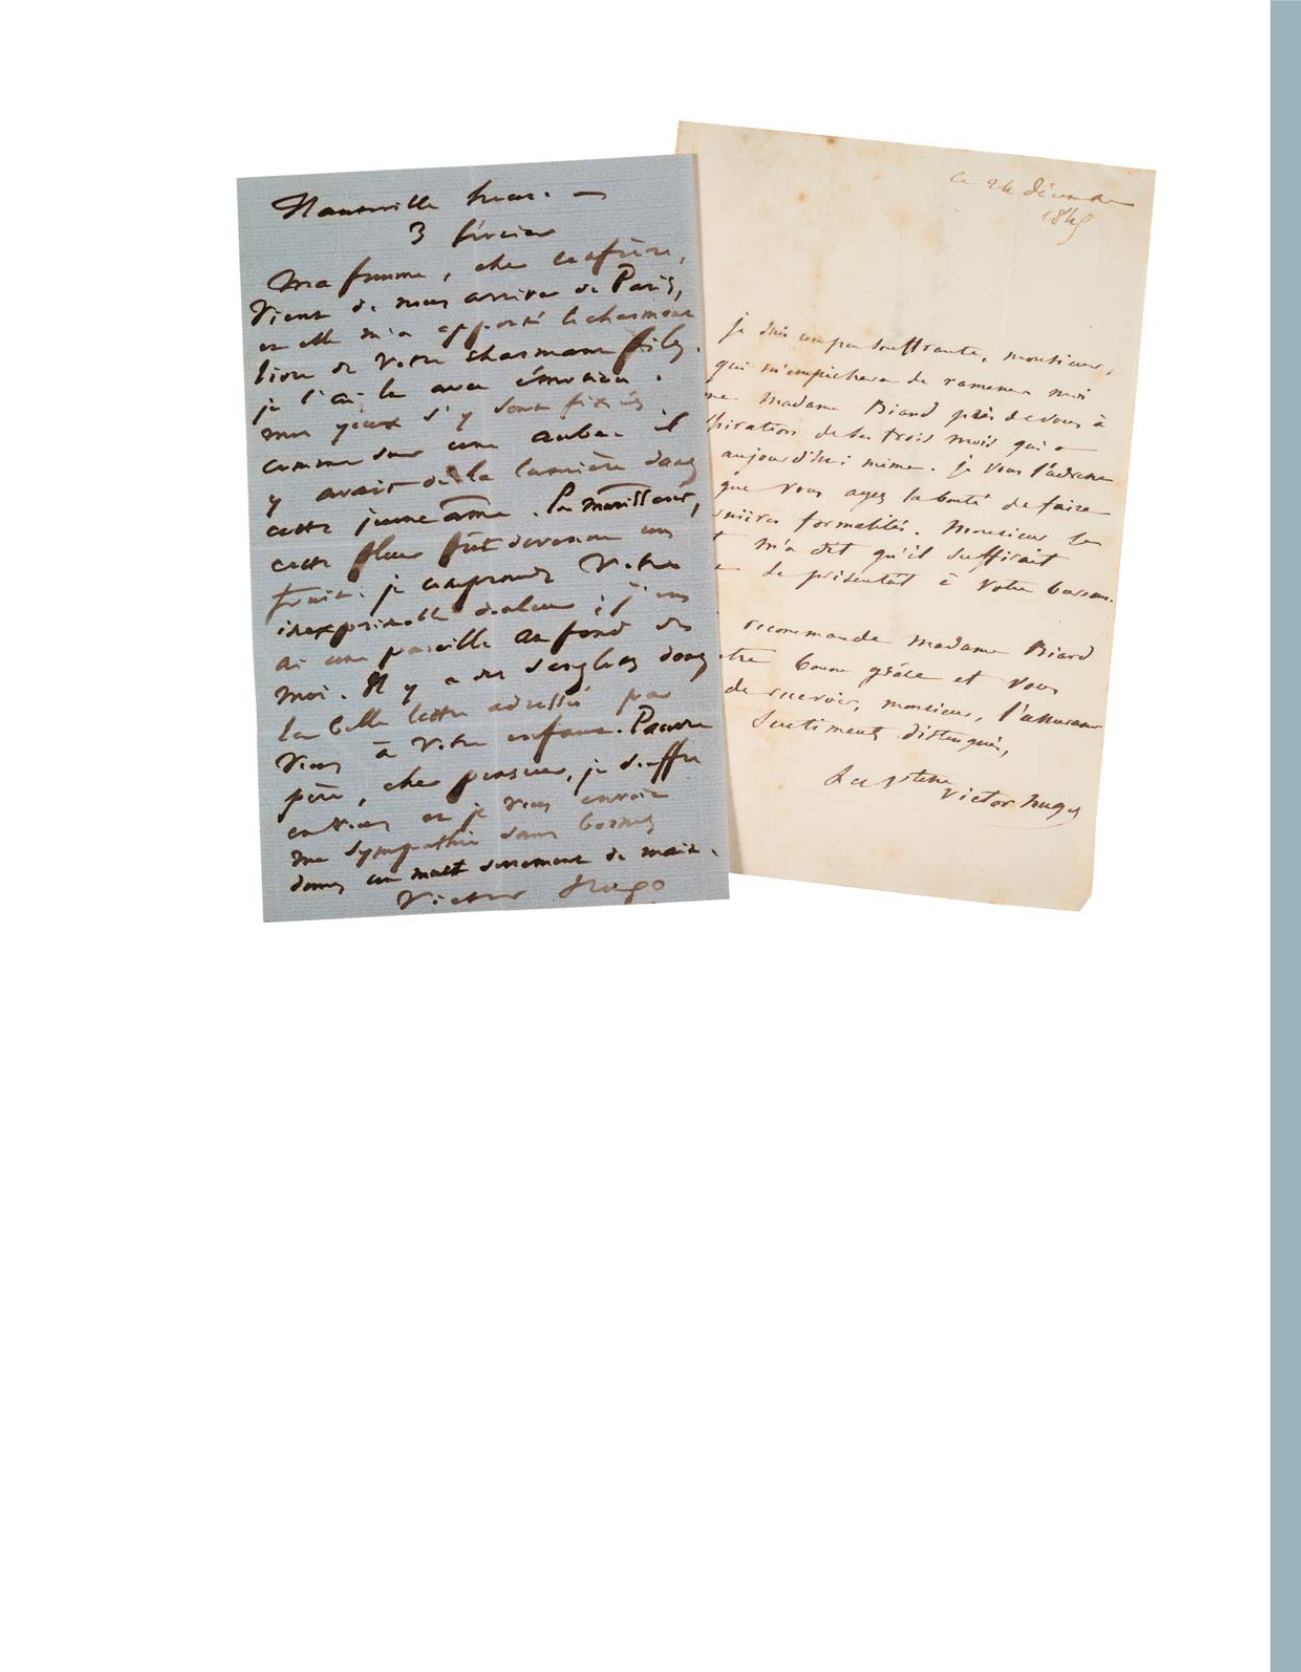 Hauteville house. —
3 février
Ma femme, cher confrère,
vient de nous arriver de Paris,
et elle m'a apporté le charmant
livre de votre charmant fils.
je l'ai lu avec émotion.
mes yeux s'y sont fixés
comme sur une aube. il
y avait de la lumière dans
cette jeune âme. En mûrissant,
cette fleur fût devenue un
fruit. je comprends votre
inexprimable douleur ; j'en
ai une pareille au fond de
moi. Il y a des sanglots dans
la belle lettre adressée par
vous à votre enfant. Pauvre
père, cher penseur, je souffre
en vous et je vous envoie
ma sympathie sans bornes
donnez un serrement de main.
Victor Hugo
ce 24 décembre
1845
je suis un peu souffrante, monsieur,
qui m'empêchera de ramener moi
me Madame Biard près de vous à
piration de ses trois mois qui a
aujourd'hui même. je vous l'adresse
que vous ayez la bonté de faire
rnières formalités. Monsieur le
t m'a dit qu'il suffirait
e se présentât à votre bureau.
recommande Madame Biard
tre bonne grâce et vous
de recevoir, monsieur, l'assurance
sentiments distingués,
La Vtesse
Victor Hugo